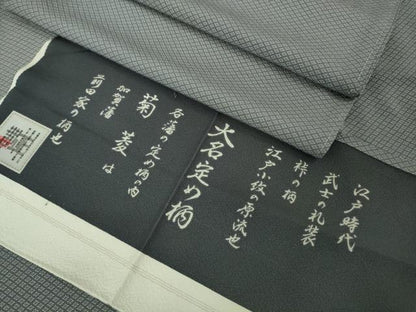 江戸時代
武士の礼装
裃の柄
江戸小紋の原流也
大名定め柄
各藩の定め柄の内
菊菱は
加賀藩
前田家の柄也